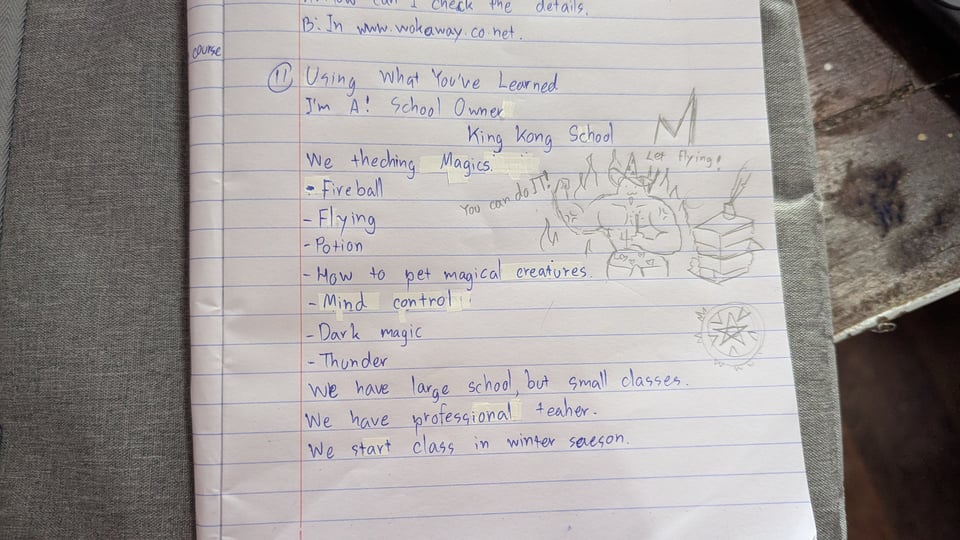 How can I check the details.
B: In www.wokaway.co.net.
course
11 Using What You've Learned
I'm A! School Owner
King Kong School
M
We theching Magics.
Let Flying!
- Fireball
You can do IT!
- Flying
- Potion
- How to pet magical creatures.
- Mind control
- Dark magic
- Thunder
We have large school, but small classes.
We have professional teaher.
We start class in winter saeson.